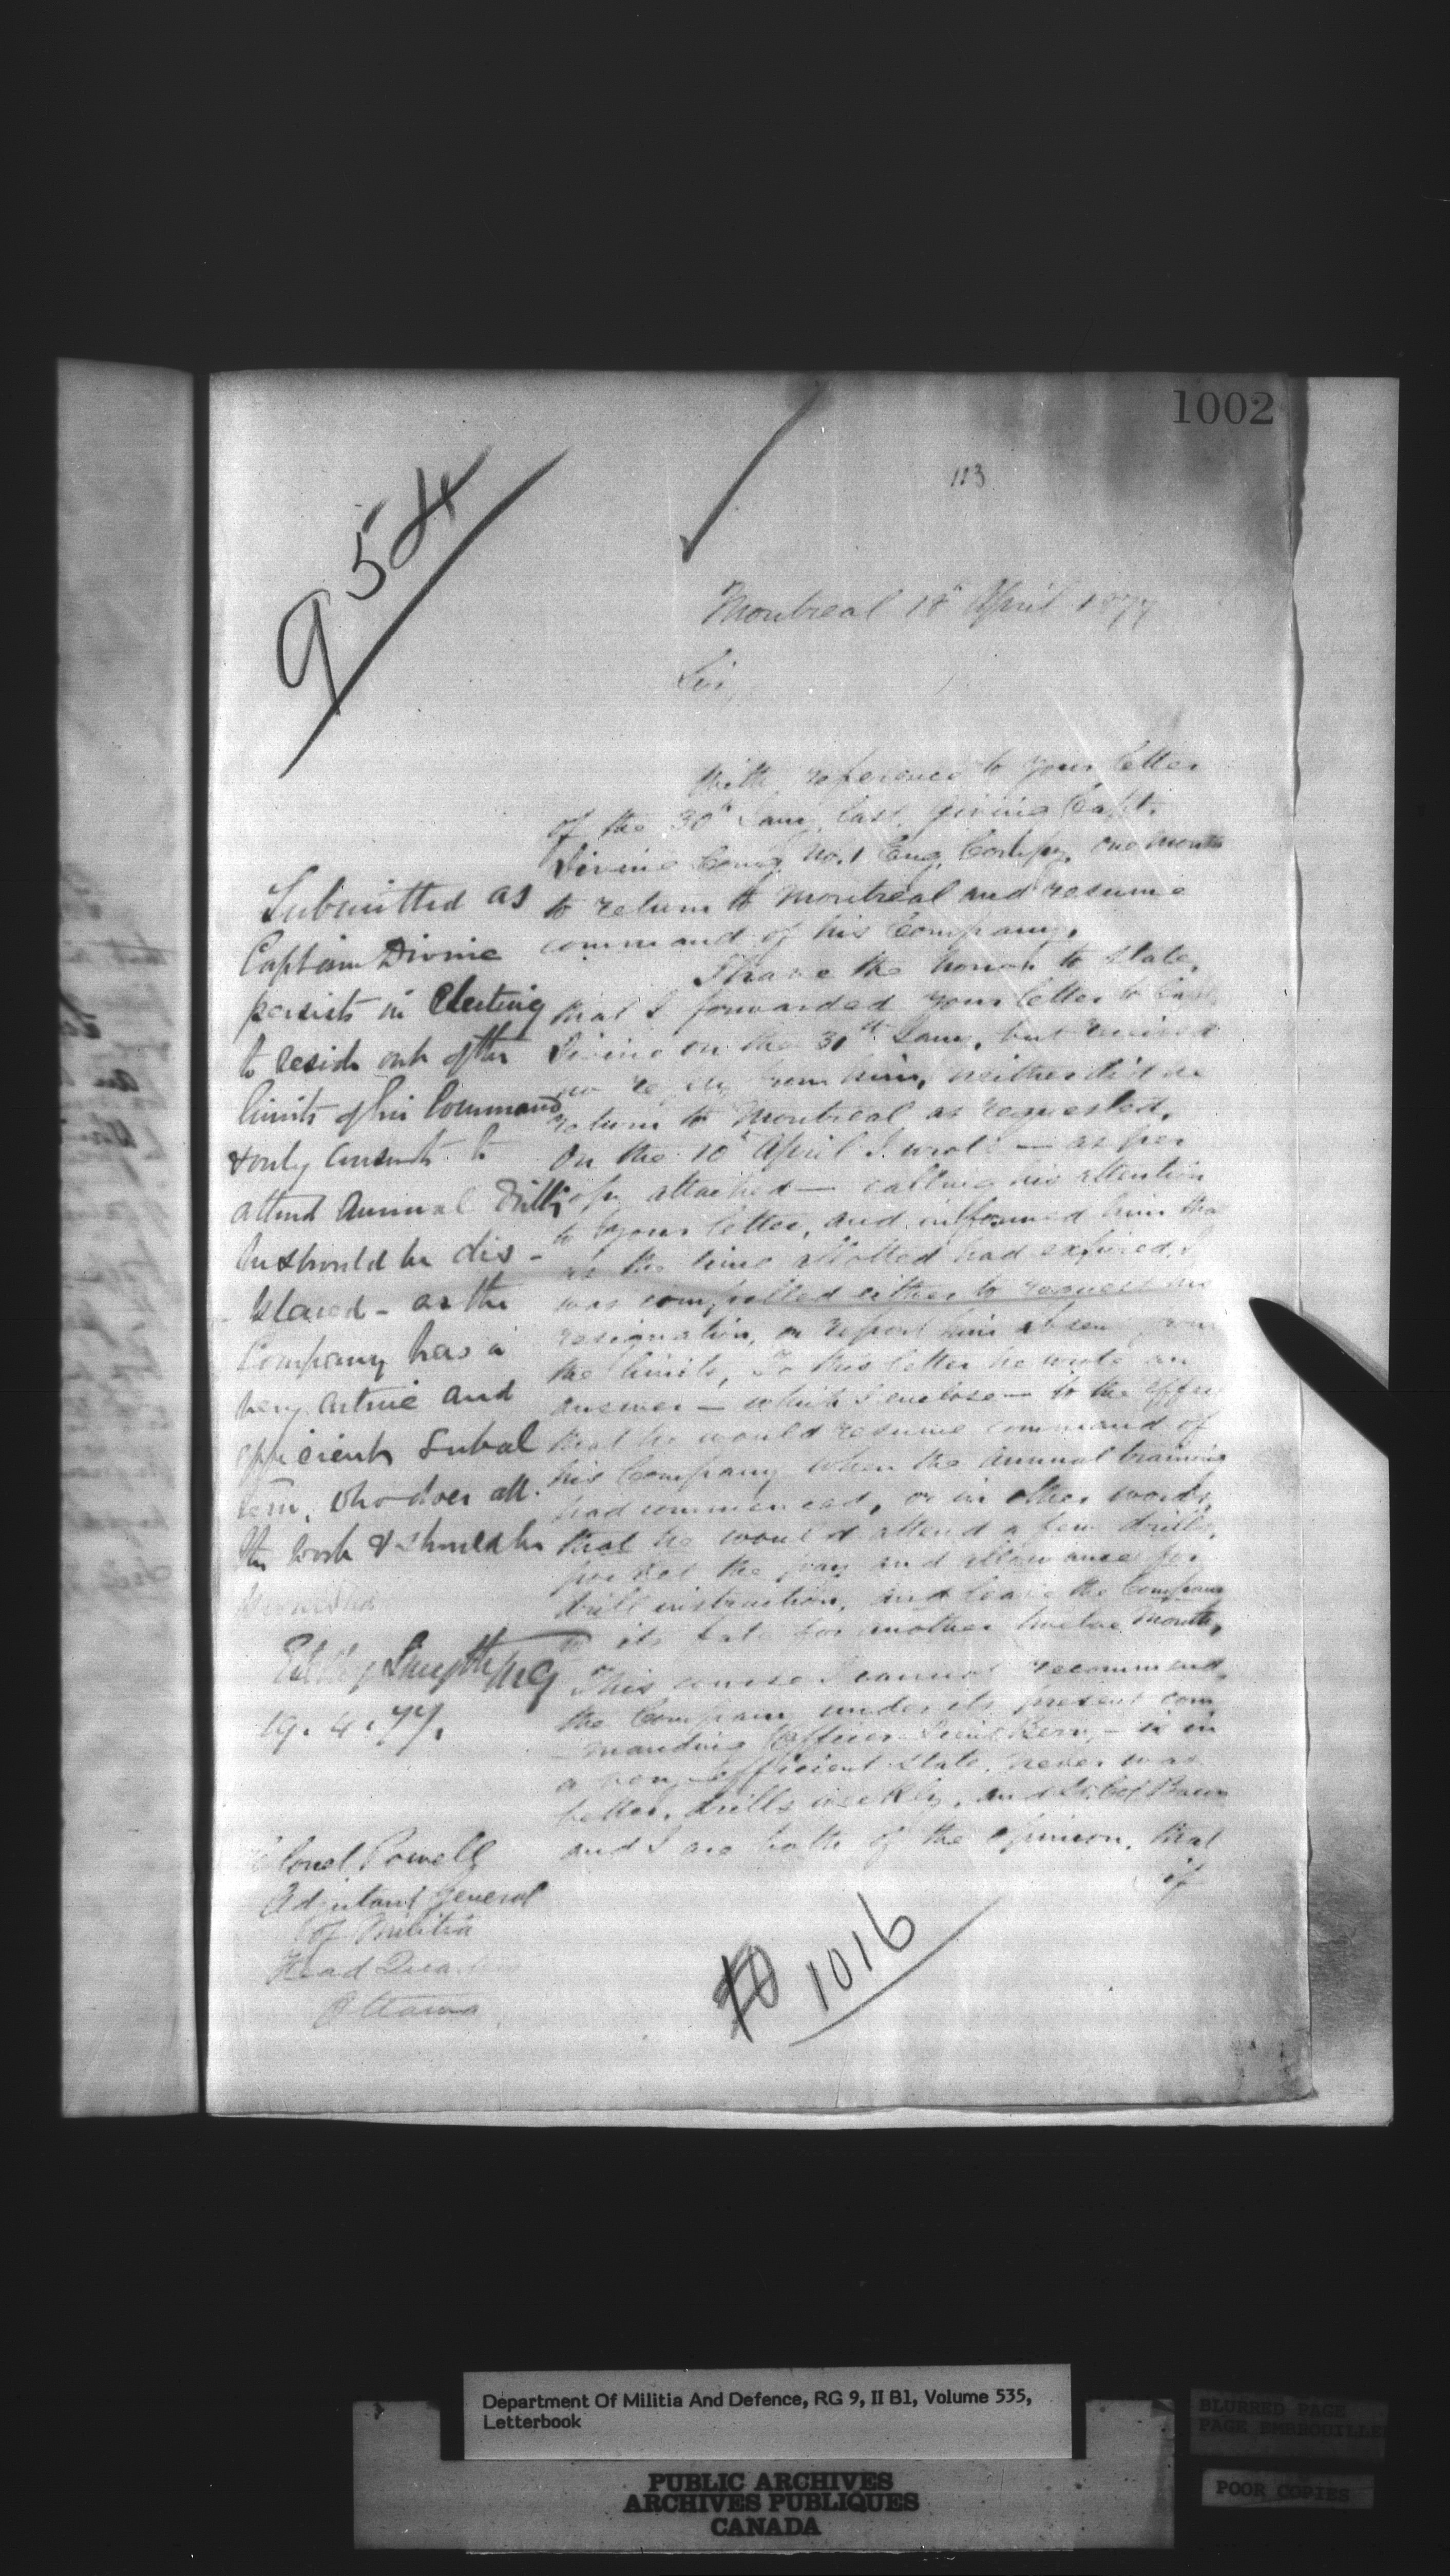 1002
113
954
Montreal 18th April 1877
Sir,
With reference to your letter
of the 30th Jany. last, giving Capt.
Divine Comg. No. 1 Eng. Compy. one month
to return to Montreal and resume
command of his Company.
I have the honor to state,
that I forwarded your letter to Capt.
Divine on the 31st Jany, but received
no reply from him, neither did he
return to Montreal as requested.
On the 10th April I wrote — as per
copy attached — calling his attention
to your letter, and informed him that
as the time allotted had expired, I
was compelled either to request his
resignation, or report him absent from
the limits, To this letter he wrote an
answer — which I enclose — to the effect
that he would resume command of
his Company when the annual training
had commenced, or in other words,
that he would attend a few drills,
pocket the pay and allowance for
drill instruction, and leave the Company
to its fate for another twelve months,
This course I cannot recommend,
the Company under its present com
-manding Officer Lieut Kerry - is in
a very efficient state, never was
better, drills weekly, and Lt. Col.
and I are both of the opinion, that
if
Submitted as
Captain Divine
persists in electing
to reside out of the
limits of his Command
& only consents to
attend Annual Drill;
he should be dis -
- placed - as the
Company has a
very active and
efficient Subal
tern, who does all
the work & should be
promoted
Smyth
19. 4. 77.
Colonel Powell
Adjutant General
of Militia
Head Quarters
Ottawa
1016
Department Of Militia And Defence, RG 9, II B1, Volume 535,
Letterbook
PUBLIC ARCHIVES
ARCHIVES PUBLIQUES
CANADA
BLURRED PAGE
PAGE EMBROUILLEE
POOR COPIES